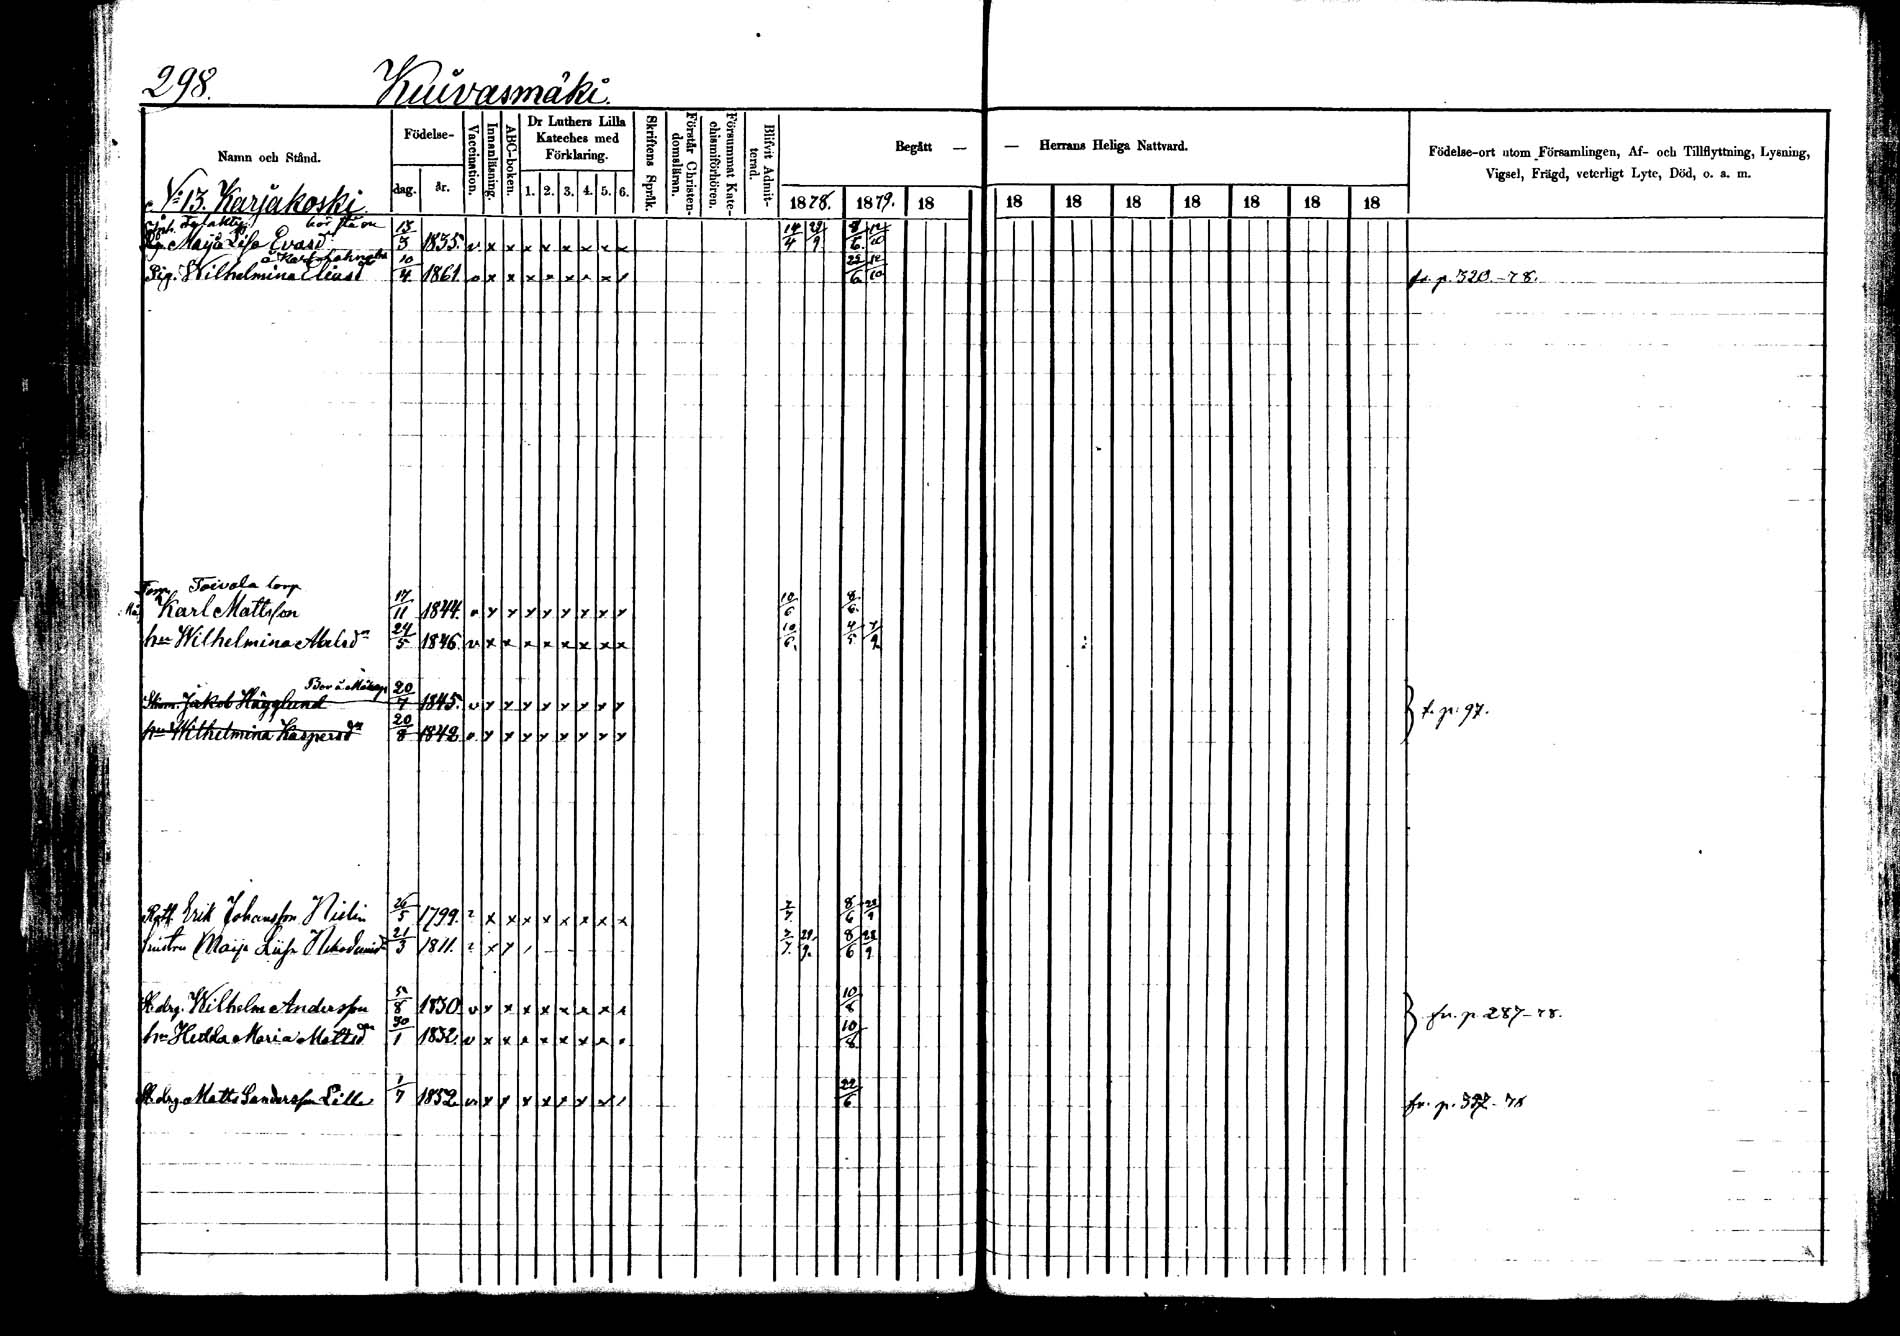 298. Kuivasmäki.
Namn och Stånd.
Födelse-
dag. år.
Vaccination.
Innanläsning.
ABC-boken.
Dr Luthers Lilla Kateches med Förklaring.
1. 2. 3. 4. 5. 6.
Skriftens Språk.
Förstår Christendomsläran.
Försummat Katechismiförhören.
Blifvit Admitterad.
Begått — — Herrans Heliga Nattvard.
1878. 1879. 18 18 18 18 18 18 18 18
Födelse-ort utom Församlingen, Af- och Tillflyttning, Lysning, Vigsel, Frägd, veterligt Lyte, Död, o. a. m.
No 13. Karjakoski
Maija Lisa Evasdr 13/3 1835. v x x x x x x x x 14/4 29/9 8/6 12/10
Pig. Wilhelmina Eliasd 10/4 1861. v x x x x x x x / 29/6 12/10 fr. p. 320.-78.
Toivola torp
Karl Mattsson 17/11 1844. v x x x x x x x x 10/6 8/6
hu Wilhelmina Abelsdr 24/5 1846. v x x x x x x x x 10/6 4/5 7/9
Jakob Hägglund 20/7 1845. v x x x x x x x x
t. p. 97.
hu Wilhelmina Kaspersdr 20/8 1842. v x x x x x x x x
Erik Johansson 26/5 1799. ? x x x x x x x x 7/7 8/6 28/9
hustru Maija 21/3 1811. ? x x / 7/7 29/9 8/6 28/9
Wilhelm Andersson 5/8 1830 v x x x x x x x x 10/8
fr. p. 287-78.
hu Hedda Maria Mattsdr 30/1 1832. v x x x x x x x x 10/8
Matts Sandersson Lille 1/7 1852. v x x x x x x x / 22/6 fr. p. 78